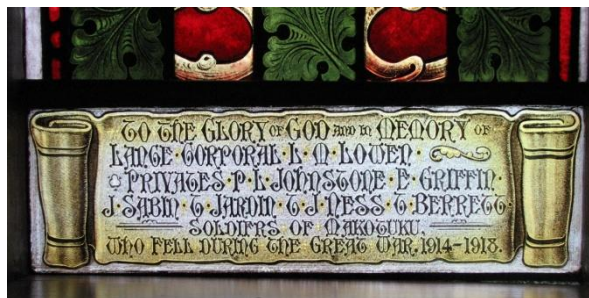 TO THE GLORY OF GOD AND IN MEMORY OF
LANCE·CORPORAL·L·M·LOWEN·
PRIVATES·P·L·JOHNSTONE·E·GRIFFIN·
J·SABIN·T·JARDIN·T·J·NESS·T·BERRETT·
SOLDIERS OF MAKOTUKU,
WHO FELL DURING THE GREAT WAR, 1914-1918.